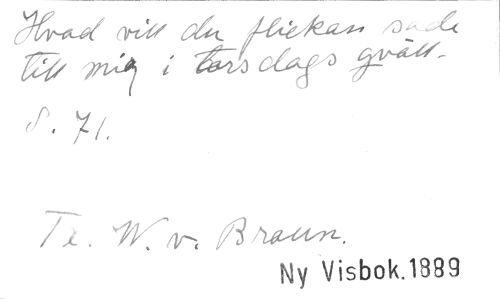 Hvad vill du flickan sade
till mig i torsdags qväll.
S. 71.
Te. W. v. Braun.
Ny Visbok.1889